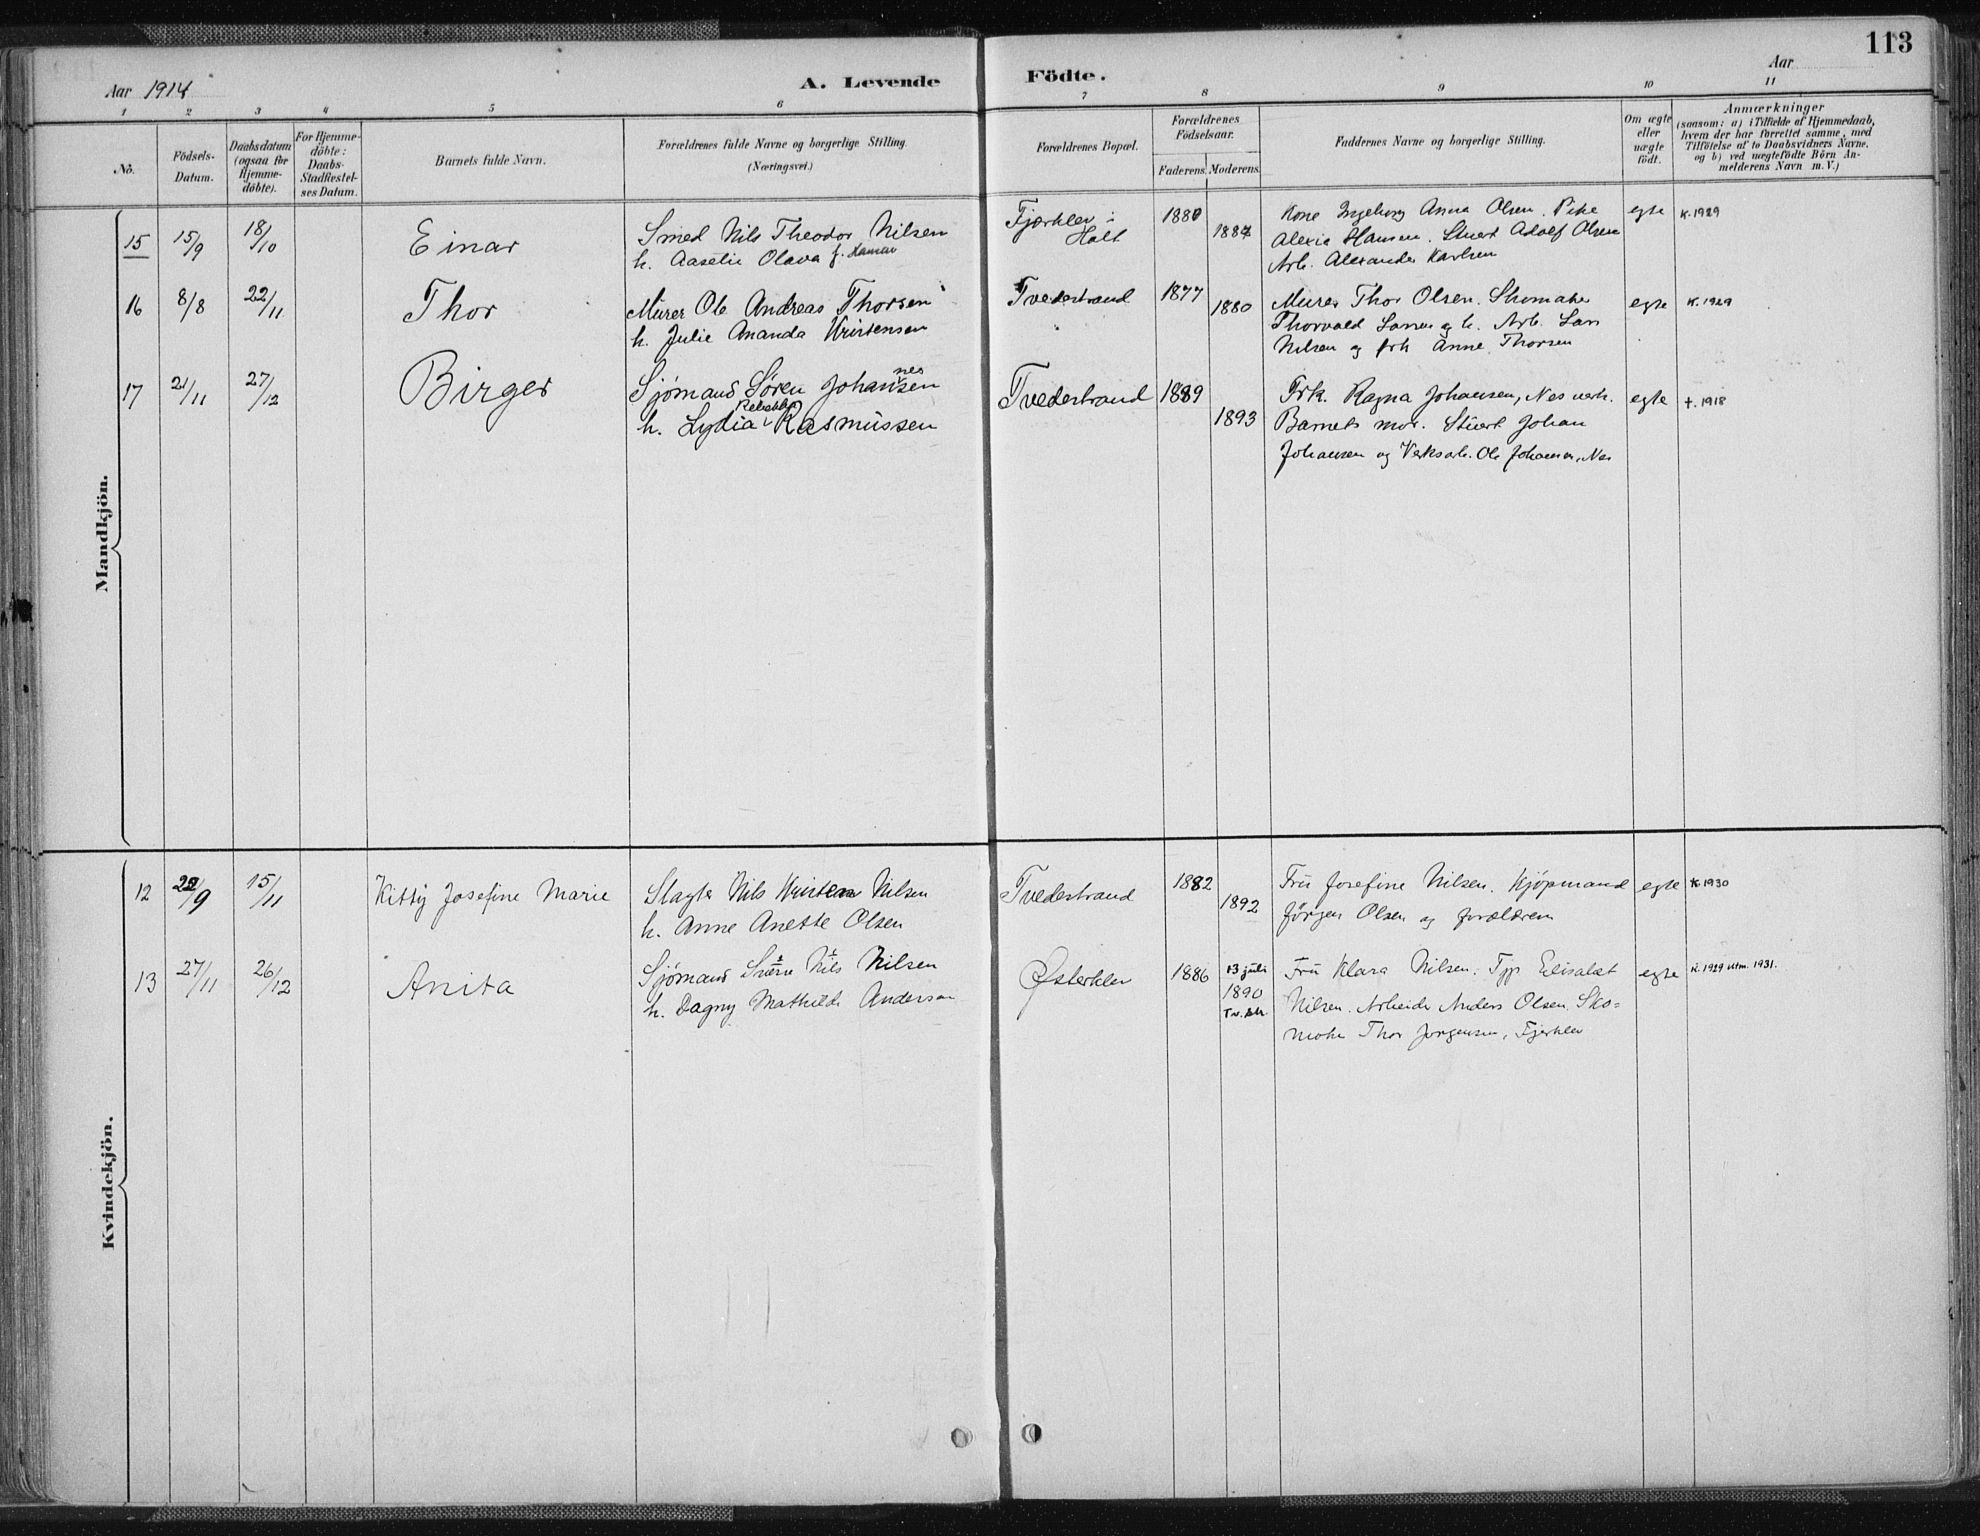 113
Aar 1914
A. Levende Födte.
Aar
1 2 3 4 5 6 7 8 9 10 11
No.
Födsels-Datum.
Daabsdatum (ogsaa for Hjemme-döbte).
For Hjemme-döbte: Daabs-Stadfæstel-ses Datum.
Barnets fulde Navn.
Forældrenes fulde Navne og borgerlige Stilling.
(Næringsvei.)
Forældrenes Bopæl.
Forældrenes Födselsaar.
Faderens. Moderens.
Faddernes Navne og borgerlige Stilling.
Om ægte eller uægte födt.
Anmærkninger
(saasom: a) i Tilfælde af Hjemmedaab,
hvem der har forrettet samme, med
Tilföielse af to Daabsvidners Navne.
og b) ved uægtefödte Börn An-
melderens Navn m. V.)
Mandkjön.
15 15/9 18/10 Einar Smed Nils Theodor Nilsen Fjærklev i 1880 Kone Ingeborg Anna Olsen. Pike egte K. 1929
h. Aaselie Olava f. Hansen Holt 1887 Alexie Hansen. Stuert Adolf Olsen
Arb. Alexander Karlsen
16 8/8 22/11 Thor Murer Ole Andreas Thorsen Tvedestrand 1877 Murer Thor Olsen. Skomaker egte K. 1929
h. Julie Amanda Kristensen 1880 Thorvald Larsen og h. Arb. Lars
Nilsen og frk Anne Thorsen
17 21/11 27/12 Birger Sjömand Søren Johannesen Tvedestrand 1889 Frk. Ragna Johansen, Nes verk. egte †. 1918
h. Lydia Rebekka Rasmussen 1893 Barnets mor. Stuert Johan
Johansen og Verksarb. Ole Johansen, Nes
Kvindekjön.
12 22/9 15/11 Kitty Josefine Marie Slagter Nils Kristen Nilsen Tvedestrand 1882 Fru Josefine Nilsen. Kjöpmand egte K. 1930
h. Anne Anette Olsen 1892 Jörgen Olsen og forældrene
13 27/11 26/12 Anita Sjömand Sverre Nils Nilsen Østerklev 1886 13 juli Fru Klara Nilsen. Typ. Elisabet egte K. 1929 utm. 1931.
h. Dagny Mathilde Andersen 1890 Nilsen. Arbeider Anders Olsen. Sko=
Tv. str. maker Thor Jorgensen, Fjerklev